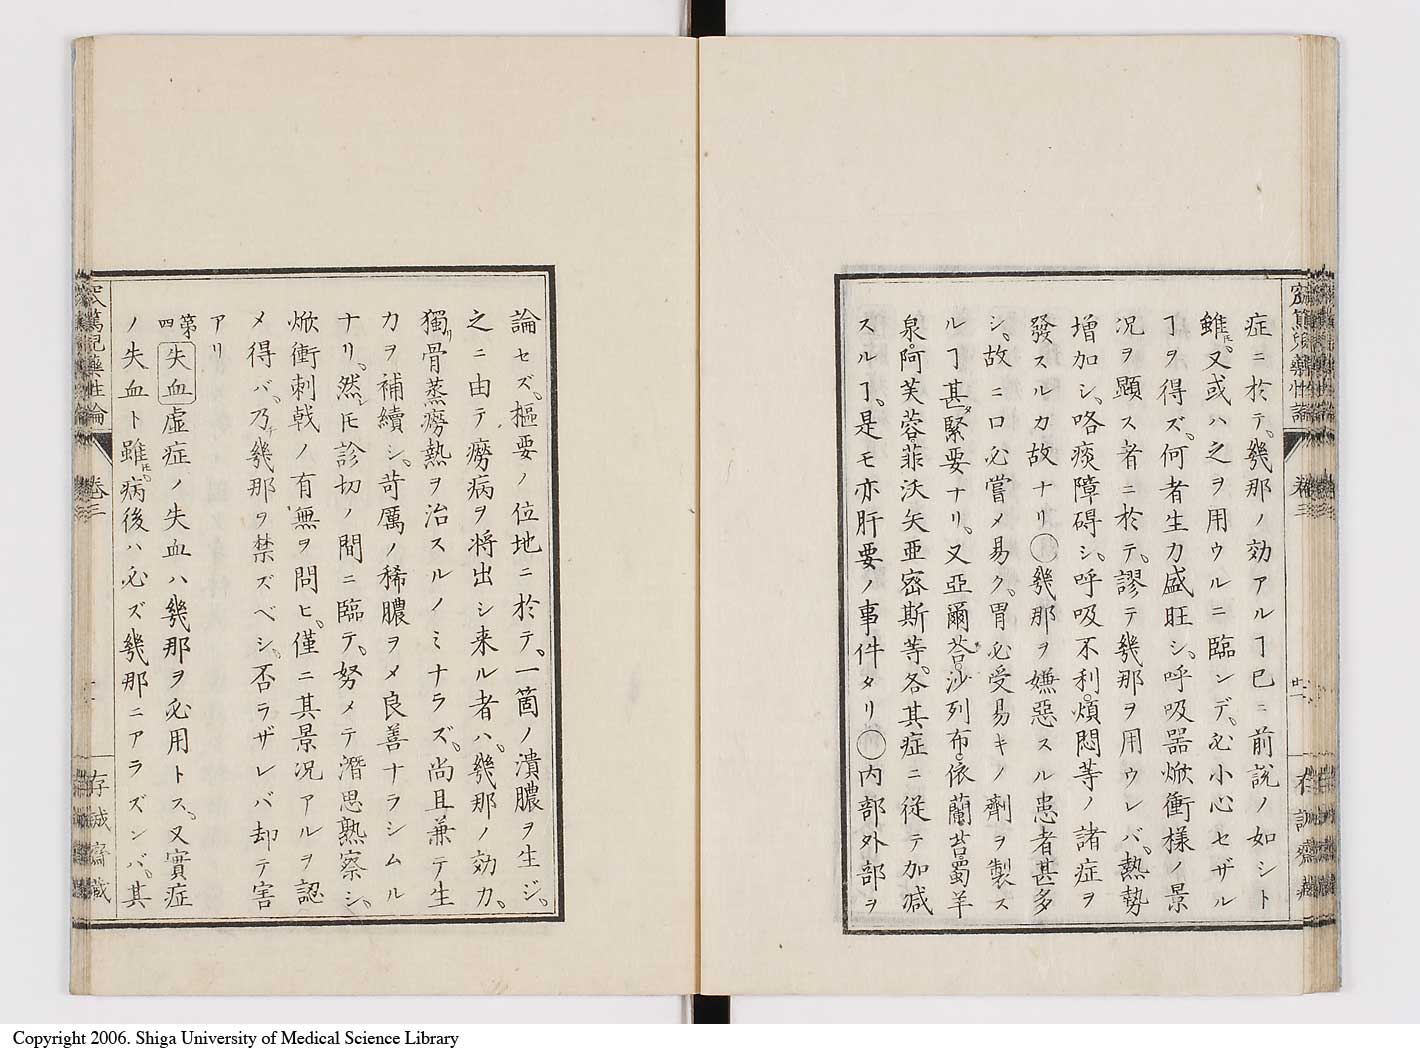 症ニ於テ、幾那ノ効アルヿ已ニ前説ノ如シト
雖𪜈、又或ハ之ヲ用ウルニ臨ンデ、必小心セザル
ヿヲ得ズ、何者生力盛旺シ、呼吸器焮衝様ノ景
況ヲ顕ス者ニ於テ、謬テ幾那ヲ用ウレバ、熱勢
増加シ、咯痰障碍シ、呼吸不利、煩悶等ノ諸症ヲ
發スルカ故ナリ○幾那ヲ嫌惡スル患者甚多
シ、故ニ口必嘗メ易ク、胃必受易キノ劑ヲ製ス
ルヿ甚タ緊要ナリ、又亞爾荅、沙列布、依蘭苔、蜀羊
泉、阿芙蓉、菲沃矢亜宻斯等、各其症ニ從テ加減
スルヿ、是モ亦肝要ノ事件タリ○内部外部ヲ
卷三
廿一
論セズ、樞要ノ位地ニ於テ、一箇ノ潰膿ヲ生ジ、
之ニ由テ癆病ヲ将出シ来ル者ハ、幾那ノ効力、
獨リ骨蒸癆熱ヲ治スルノミナラズ、尚且兼テ生
力ヲ補續シ、苛厲ノ稀膿ヲメ良善ナラシムル
ナリ、然レ𪜈診切ノ間ニ臨テ、努メテ潛思熟察シ、
焮衝刺戟ノ有無ヲ問ヒ、僅ニ其景況アルヲ認
メ得バ、乃チ幾那ヲ禁ズベシ、否ラザレバ却テ害
アリ
第四 失血 虚症ノ失血ハ幾那ヲ必用トス、又實症
ノ失血ト雖𪜈、病後ハ必ズ幾那ニアラズンバ、其
卷三
存誠齋蔵
Copyright 2006. Shiga University of Medical Science Library